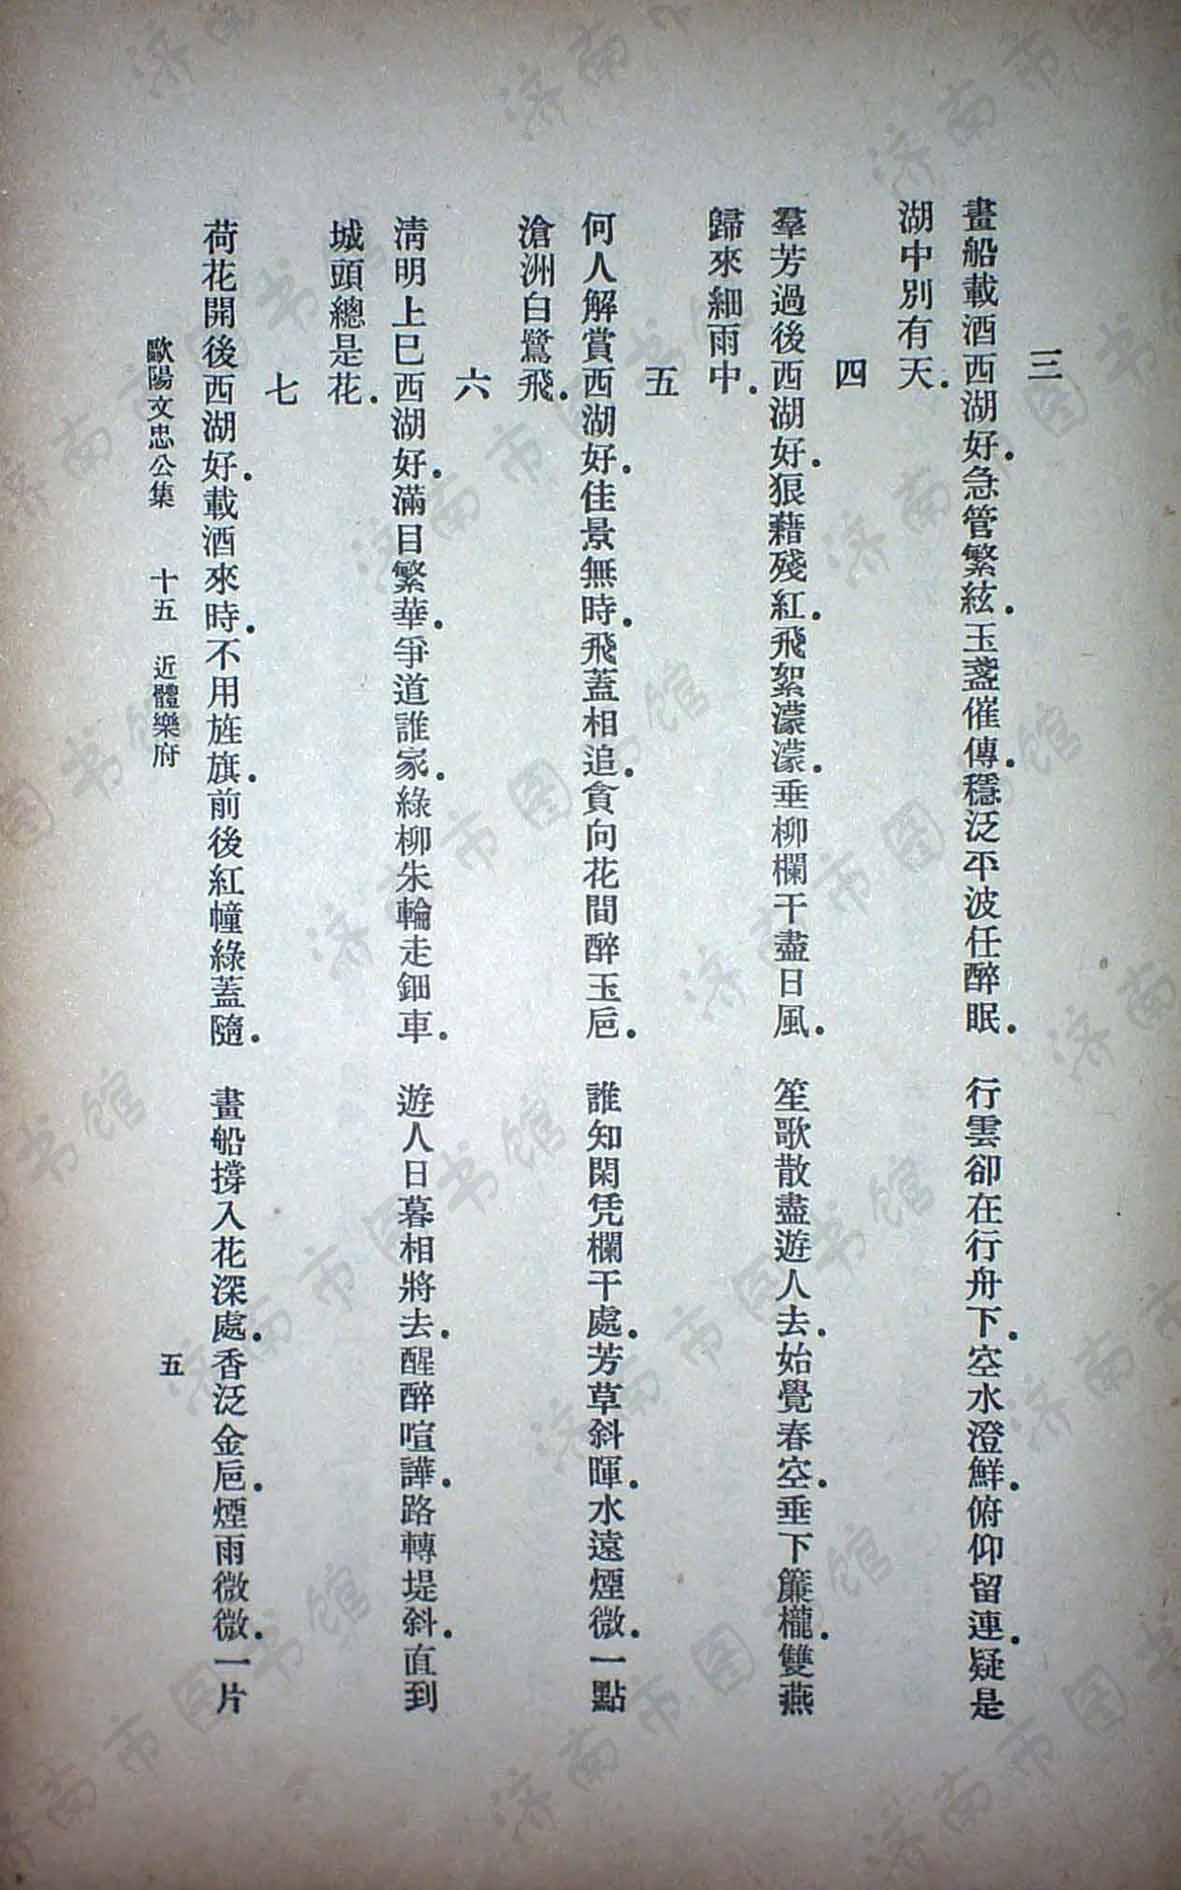 三
畫船載酒西湖好．急管繁絃．玉盞催傳．穩泛平波任醉眠．　行雲卻在行舟下．空水澄鮮．俯仰留連．疑是
湖中別有天．
四
羣芳過後西湖好．狼藉殘紅．飛絮濛濛．垂柳欄干盡日風．　笙歌散盡遊人去．始覺春空．垂下簾櫳．雙燕
歸來細雨中．
五
何人解賞西湖好．佳景無時．飛蓋相追．貪向花間醉玉巵．　誰知閑凭欄干處．芳草斜暉．水遠煙微．一點
滄洲白鷺飛．
六
清明上巳西湖好．滿目繁華．爭道誰家．綠柳朱輪走鈿車．　遊人日暮相將去．醒醉喧譁．路轉堤斜．直到
城頭總是花．
七
荷花開後西湖好．載酒來時．不用旌旗．前後紅幢綠蓋隨．　畫船撐入花深處．香泛金巵．煙雨微微．一片
歐陽文忠公集　十五　近體樂府　五
济南市图书馆